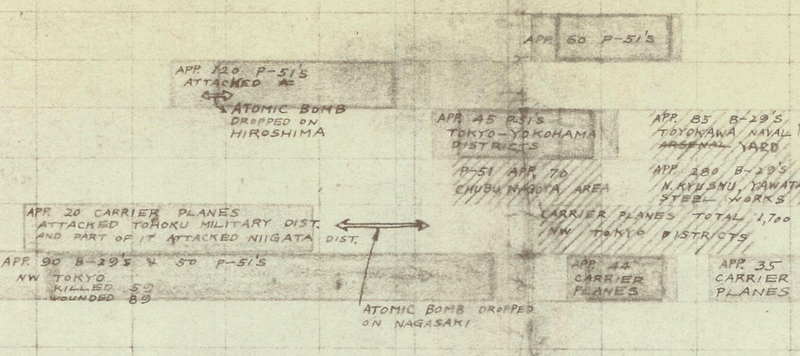 APP. 60 P-51'S
APP. 120 P-51'S
ATTACKED
ATOMIC BOMB
DROPPED ON
HIROSHIMA
APP. 45 P51'S
TOKYO-YOKOHAMA
DISTRICTS
APP. 85 B-29'S
TOYOKAWA NAVAL
ARSENAL YARD
P-51 APP. 70
CHUBU NAGOYA AREA
APP. 280 B-29'S
N.KYUSHU, YAWATA
STEEL WORKS
APP. 20 CARRIER PLANES
ATTACKED TOHOKU MILITARY DIST.
AND PART OF IT ATTACKED NIIGATA DIST.
CARRIER PLANES TOTAL 1,700
NW TOKYO DISTRICTS
APP. 90 B-29'S & 50 P-51'S
NW TOKYO
KILLED 59
WOUNDED 89
APP. 44
CARRIER
PLANES
APP. 35
CARRIER
PLANES
ATOMIC BOMB DROPPED
ON NAGASAKI